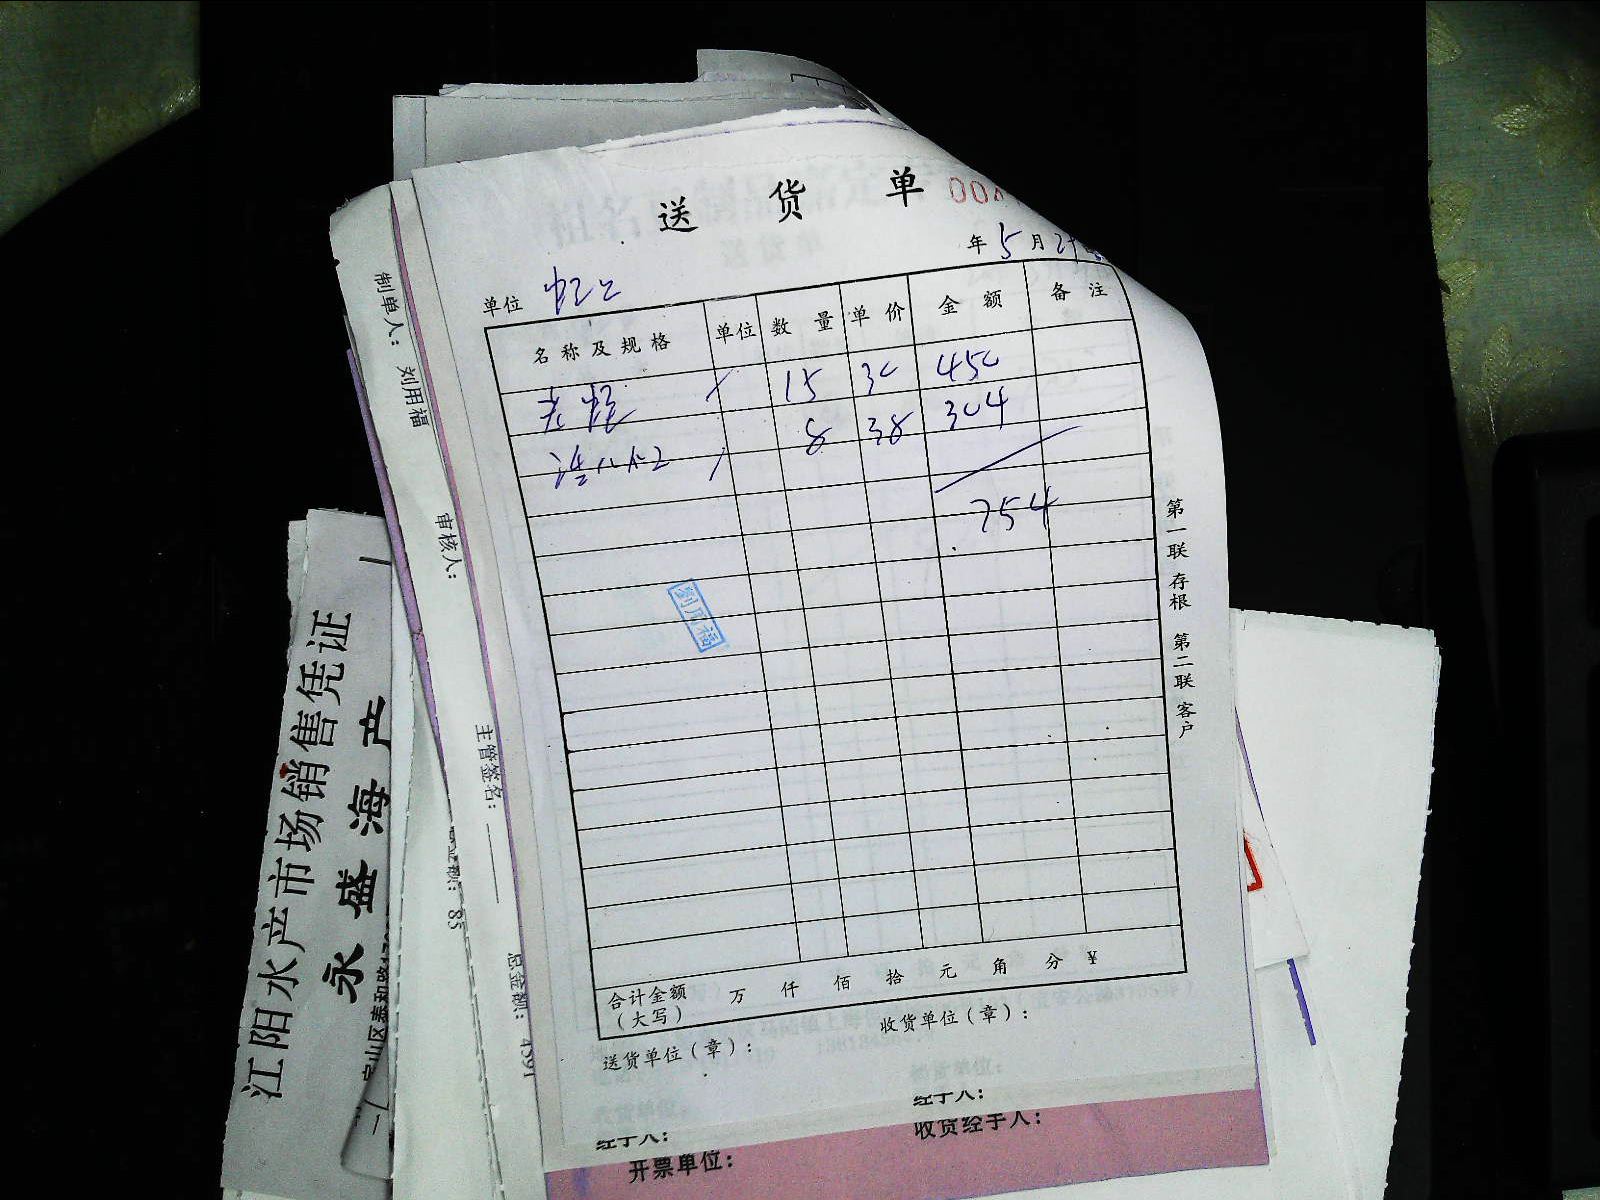 送 货 单
00
年 5 月
单位
名称及规格 单位 数 量 单 价 金 额 备 注
15 30 450
8 38 304
754
刘用福
第一联 存根 第二联 客户
合计金额（大写） 万 仟 佰 拾 元 角 分 ¥
送货单位（章）： 收货单位（章）：
经手人： 经手人：
收货经手人：
开票单位：
制单人： 刘用福
审核人：
主管签名：
85
总金额： 4391
江阳水产市场销售凭证
永 盛 海 产